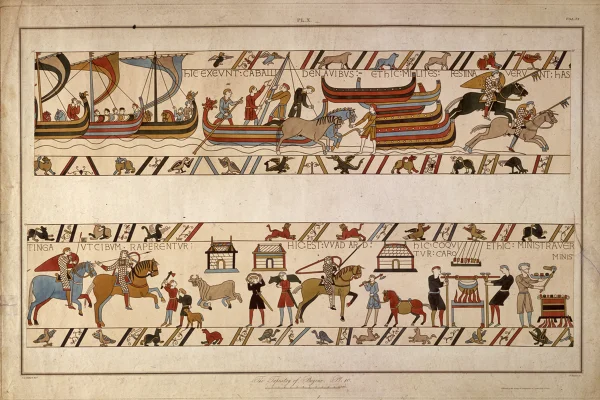 PL. X.
HIC EXEVNT: CABALLI DENAVIBVS:- ETHIC: MILITES: FESTINA VERVNT: HAS
TINGA VTCIBVM: RAPERENTVR: HIC EST: VVADARD: HIC: COQVI ETHIC: MINISTRAVER
TVR: CARO MINIS
The Tapestry of Bayeux.